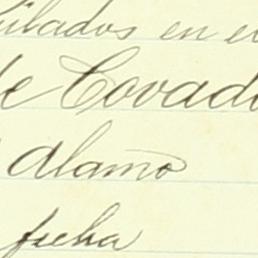 ulados en el
de Covad
Alamo
fecha